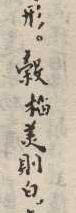 形。穀稻美則白,